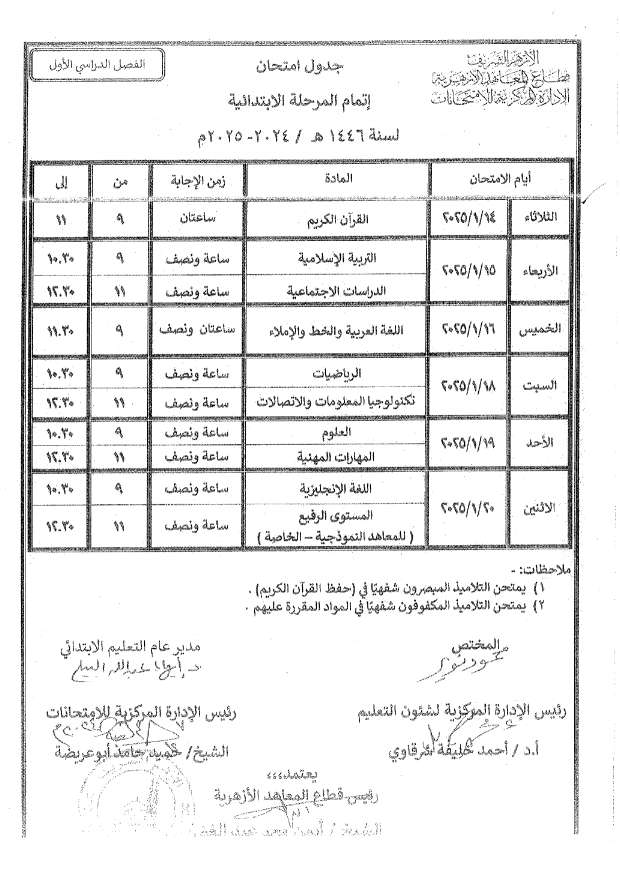 الأزهر الشريف
قطاع المعاهد الأزهرية
الإدارة المركزية للامتحانات
جدول امتحان
إتمام المرحلة الابتدائية
لسنة ١٤٤٦ هـ / ٢٠٢٤- ٢٠٢٥م
الفصل الدراسي الأول
أيام الامتحان المادة زمن الإجابة من إلى
الثلاثاء ٢٠٢٥/١/١٤ القرآن الكريم ساعتان ٩ ١١
الأربعاء ٢٠٢٥/١/١٥ التربية الإسلامية ساعة ونصف ٩ ١٠.٣٠
الدراسات الاجتماعية ساعة ونصف ١١ ١٢.٣٠
الخميس ٢٠٢٥/١/١٦ اللغة العربية والخط والإملاء ساعتان ونصف ٩ ١١.٣٠
السبت ٢٠٢٥/١/١٨ الرياضيات ساعة ونصف ٩ ١٠.٣٠
تكنولوجيا المعلومات والاتصالات ساعة ونصف ١١ ١٢.٣٠
الأحد ٢٠٢٥/١/١٩ العلوم ساعة ونصف ٩ ١٠.٣٠
المهارات المهنية ساعة ونصف ١١ ١٢.٣٠
الاثنين ٢٠٢٥/١/٢٠ اللغة الإنجليزية ساعة ونصف ٩ ١٠.٣٠
المستوى الرفيع ساعة ونصف ١١ ١٢.٣٠
( للمعاهد النموذجية – الخاصة )
ملاحظات: -
١) يمتحن التلاميذ المبصرون شفهيًا في (حفظ القرآن الكريم) .
٢) يمتحن التلاميذ المكفوفون شفهيًا في المواد المقررة عليهم .
المختص
مدير عام التعليم الابتدائي
رئيس الإدارة المركزية لشئون التعليم
أ.د / أحمد خليفة شرقاوي
رئيس الإدارة المركزية للامتحانات
الشيخ/ حميد حامد أبوعريضة
يعتمد،،،
رئيس قطاع المعاهد الأزهرية